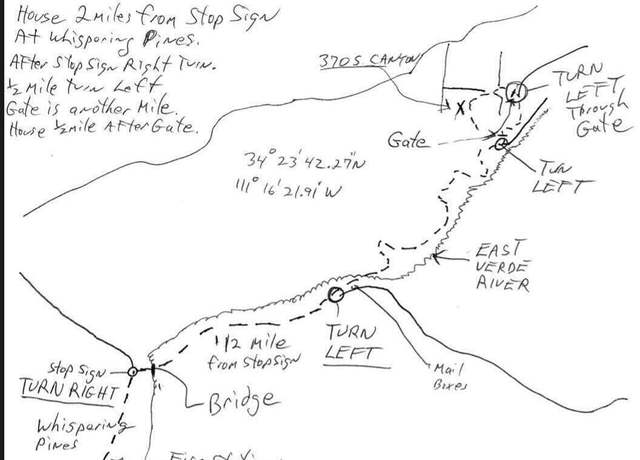 House 2 Miles from Stop Sign
At Whispering Pines.
After Stop Sign Right Turn.
1/2 Mile Turn Left
Gate is another Mile.
House 1/2 mile After Gate.
370 S CANYON
X
TURN
LEFT
Through
Gate
Gate
TURN
LEFT
34° 23' 42.27"N
111° 16' 21.91" W
EAST
VERDE
RIVER
1/2 Mile
from Stop sign
TURN
LEFT
Mail
Boxes
Stop Sign
TURN RIGHT
Bridge
Whispering
Pines